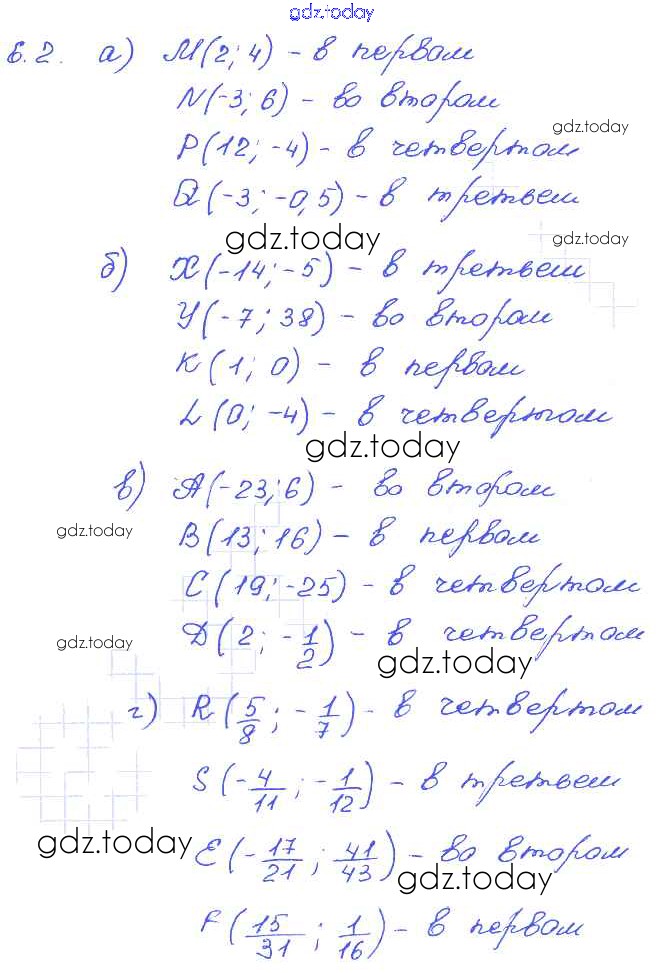 gdz.today
6.2. а) M(2; 4) - в первом
N(-3; 6) - во втором
gdz.today
P(12; -4) - в четвертом
Q(-3; -0,5) - в третьем
gdz.today
gdz.today
б) X(-14; -5) - в третьем
Y(-7; 38) - во втором
K(1; 0) - в первом
L(0; -4) - в четвертом
gdz.today
в) A(-23; 6) - во втором
gdz.today
B(13; 16) - в первом
C(19; -25) - в четвертом
D(2; -1/2) - в четвертом
gdz.today
gdz.today
г) R(5/8; -1/7) - в четвертом
S(-4/11; -1/12) - в третьем
gdz.today
E(-17/21; 41/43) - во втором
gdz.today
F(15/31; 1/16) - в первом